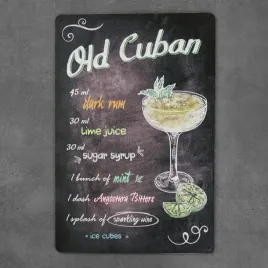 Old Cuban
45 ml
dark rum
30 ml
lime juice
30 ml
sugar syrup
1 bunch of mint
1 dash Angostura Bitters
1 splash of sparkling wine
+ ice cubes +